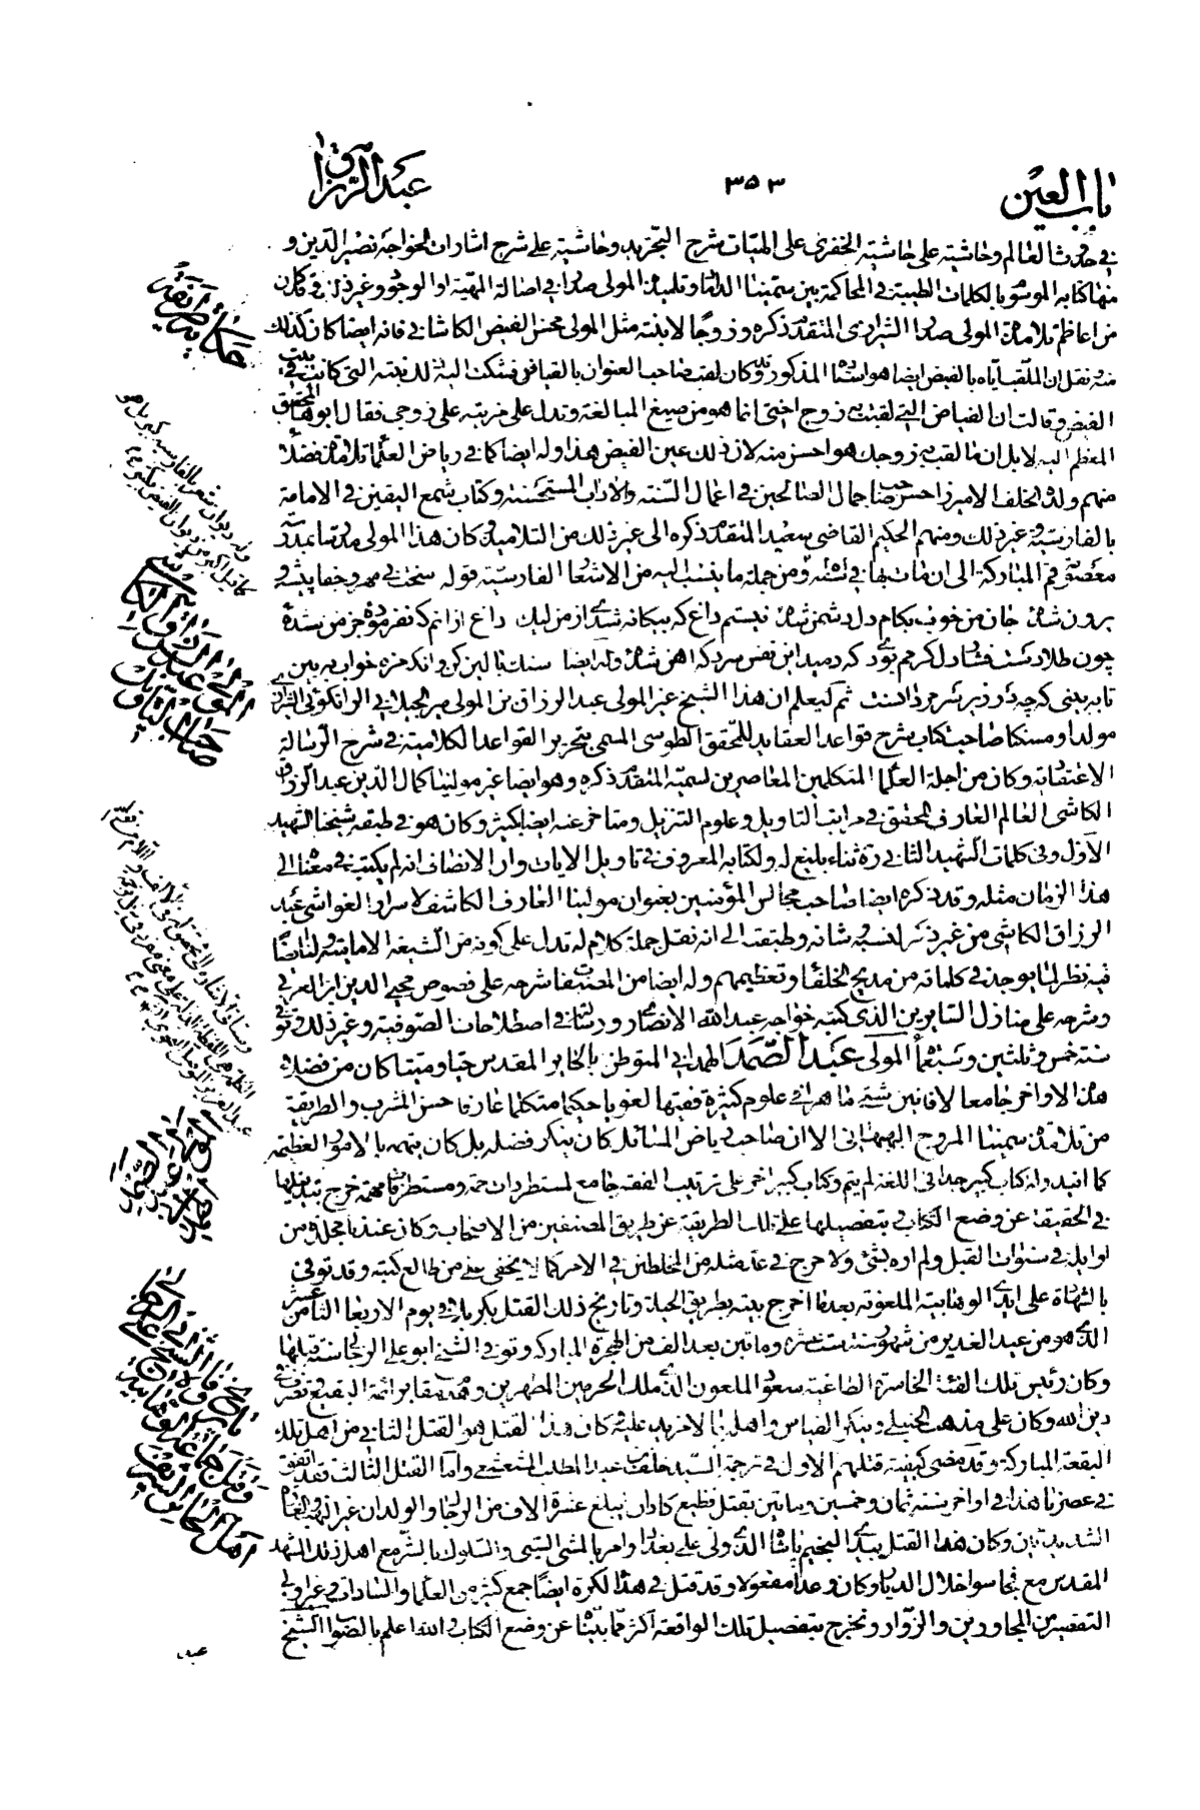 باب العين
٣٥٣
عبد الرزاق
في حدوث العالم وحاشية على حاشية الخفرى على الهيات شرح التجريد وحاشية على شرح اشارات الخواجه نصير الدين و
منها كتابه الموسوم بالكلمات الطيبة في المحاكمة بين سميّنا الداماد وتلميذه المولى صدرا في اصالة المهيّة او الوجود وغير ذلك وقد كان
من اعاظم تلامذة المولى صدرا الشيرازى المتقدم ذكره وزوجا لابنته مثل المولى محسن الفيض الكاشانى فانه ايضا كان كذلك
ونقل ان الملقب اياه بالفيض ايضا هو استاده المذكور وكان لقب صاحب العنوان بالفياض فشكت اليه ابنته التى كانت في بيت
الفيض وقالت ان الفياض الذى لقبت به زوج اختى انما هو من صيغ المبالغة وتدل على مزيته على زوجى فقال ابوها المحقق
المعظم اليه لا بل ان ما لقب به زوجك هو احسن منه لان ذلك عين الفيض هذا وله ايضا كما في رياض العلما تلامذة فضلاء
منهم ولده الخلف الاميرزا حسن صاحب جمال الصالحين في اعمال السنة والاداب المستحسنة وكتاب شمع اليقين في الامامة
بالفارسية وغير ذلك ومنهم الحكيم القاضى سعيد المتقدم ذكره الى غير ذلك من التلاميذ وكان هذا المولى مدرسا بمدرسة
معصومة قم المباركة الى ان مات بها في ومن جملة ما ينسب اليه من الاشعار الفارسية قوله سخت بي مهر وجفا پيشه و
برون شده جان من خوب بكام دل دشمن شده نيستم داغ كه بيكانه شدى از من ليك داغ ازانم كه نفرموده جز من شده
چون طلا دست فشار دل كرمم بود كه دميد اين نفس سرد كه اهن شده وله ايضا سنك بالين كن وانكه مزه خواب ببين
تا ببينى كه چه در زير سر مردانست ثم ليعلم ان هذا الشيخ غير المولى عبد الرزاق بن المولى مير الجيلانى الرانكوئى الشيرازى
مولدا ومسكنا صاحب كتاب شرح قواعد العقايد للمحقق الطوسى المسمى بتحرير القواعد الكلامية في شرح الرسالة
الاعتقادية وكان من اجلة العلما المتكلمين المعاصرين لسميّه المتقدم ذكره وهو ايضا غير مولينا كمال الدين عبد الرزاق
الكاشى العالم العارف المحقق في مراتب التاويل وعلوم التنزيل ومتاخر عنه ايضا بكثير وكان هو في طبقة شيخنا الشهيد
الاول وفي كلمات الشهيد الثانى ره ثناء بليغ له ولكتابه المعروف في تاويل الايات وان الانصاف انه لم يكتب في معناه الى
هذا الزمان مثله وقد ذكره ايضا صاحب مجالس المؤمنين بعنوان مولينا العارف الكاشف لاسرار الغواشى عبد
الرزاق الكاشى من غير ذكر لنسبه وشانه وطبقته الا انه نقل جملة كلام له تدل على كونه من الشيعة الامامية ولنا ايضا
فيه نظر لما يوجد في كلماته من مديح الخلفاء وتعظيمهم وله ايضا من المصنفات شرحه على فصوص محيى الدين ابن العربى
وشرحه على منازل السايرين الذى كتبه خواجه عبد الله الانصارى ورسالة في اصطلاحات الصوفية وغير ذلك وتوفى
سنة خمس وثلثين وسبعمأة المولى عبد الصمد الهمدانى المتوطن بالحاير المقدس حيا وميتا كان من فضلاء
هذا الاواخر جامعا لافانين شتى ماهرا في علوم كثيرة فقيها لغويا حكيما متكلما عارفا حسن المشرب والطريقة
من تلامذة سميّنا المروج البهبهانى الا ان صاحب رياض المسائل كان ينكر فضله بل كان يتهمه بالامور العظيمة
كما افيد وله كتاب كبير جدا في اللغة لم يتم وكتاب كبير اخر على ترتيب الفقه جامع لمستطردات جمة ومستطرفات مهمة خرج بتبذيلها
في الحقيقة عن وضع الكتاب وبتفصيلها على تلك الطريقة عن طريق المصنفين من الاصحاب وكان عندنا مجلدة من
اوايله في سنوات القبل ولم اره بشئ ولا حرج في عد مثله من الخلطين في الامر كما لا يخفى على من طالع كتبه وقد توفى
بالشهادة على ايدى الوهابية الملعونه بعدما اخرج من بيته بطريق الحيلة وتاريخ ذلك القتل بكربلا في يوم الاربعا الثامن عشر
الذى هو من عيد الغدير من شهور سنة ست عشرة وماتين بعد الف من الهجرة المباركة وتوفى الشيخ ابو على الرجالى سنة قبلها
وكان رئيس تلك الفئة الخاسرة الطاغية سعود الملعون الذى ملك الحرمين المطهرين وهدم مقابر ائمة البقيع وتصرف في
دين الله وكان على مذهب الحنبلى وينكر القياس واهله بما لا مزيد عليه وكان هذا القتل هو القتل الثانى من اهل تلك
البقعة المباركة وقد مضى كيفية قتلهم الاول في ترجمة السيد خلف بن عبد المطلب المشعشعى واما القتل الثالث فقد اتفق
في عصرنا هذا في اواخر سنة ثمان وخمسين وماتين بقتل فظيع كاد ان يبلغ عشرة الاف من الرجال والولدان غير النهب والغارة
الشديدين وكان هذا القتل بيد النجيم پاشا الذى ولى على بغداد وامر بالمشى السيئ والسلوك بالشر مع اهل ذلك المشهد
المقدس مع فجاسوا خلال الديار وكان وعدا مفعولا وقد قتل في هذه الكرة ايضا جمع كثير من العلماء والسادات وغير اولى
التقصير من المجاورين والزوار ونخرج بتفصيل تلك الواقعة اكثر مما بيّنا عن وضع الكتاب والله اعلم بالصواب الشيخ
عبد
حكاية طريفة
وله ديوان شعر بالفارسية كبير
المولى عبد الرزاق الكاشى
صاحب التاويلات
المولى عبد الصمد الهمدانى
تاريخ وفات الشيخ ابى على الرجالى
وقتل جماعة الوهابية
اهل الحاير الشريف